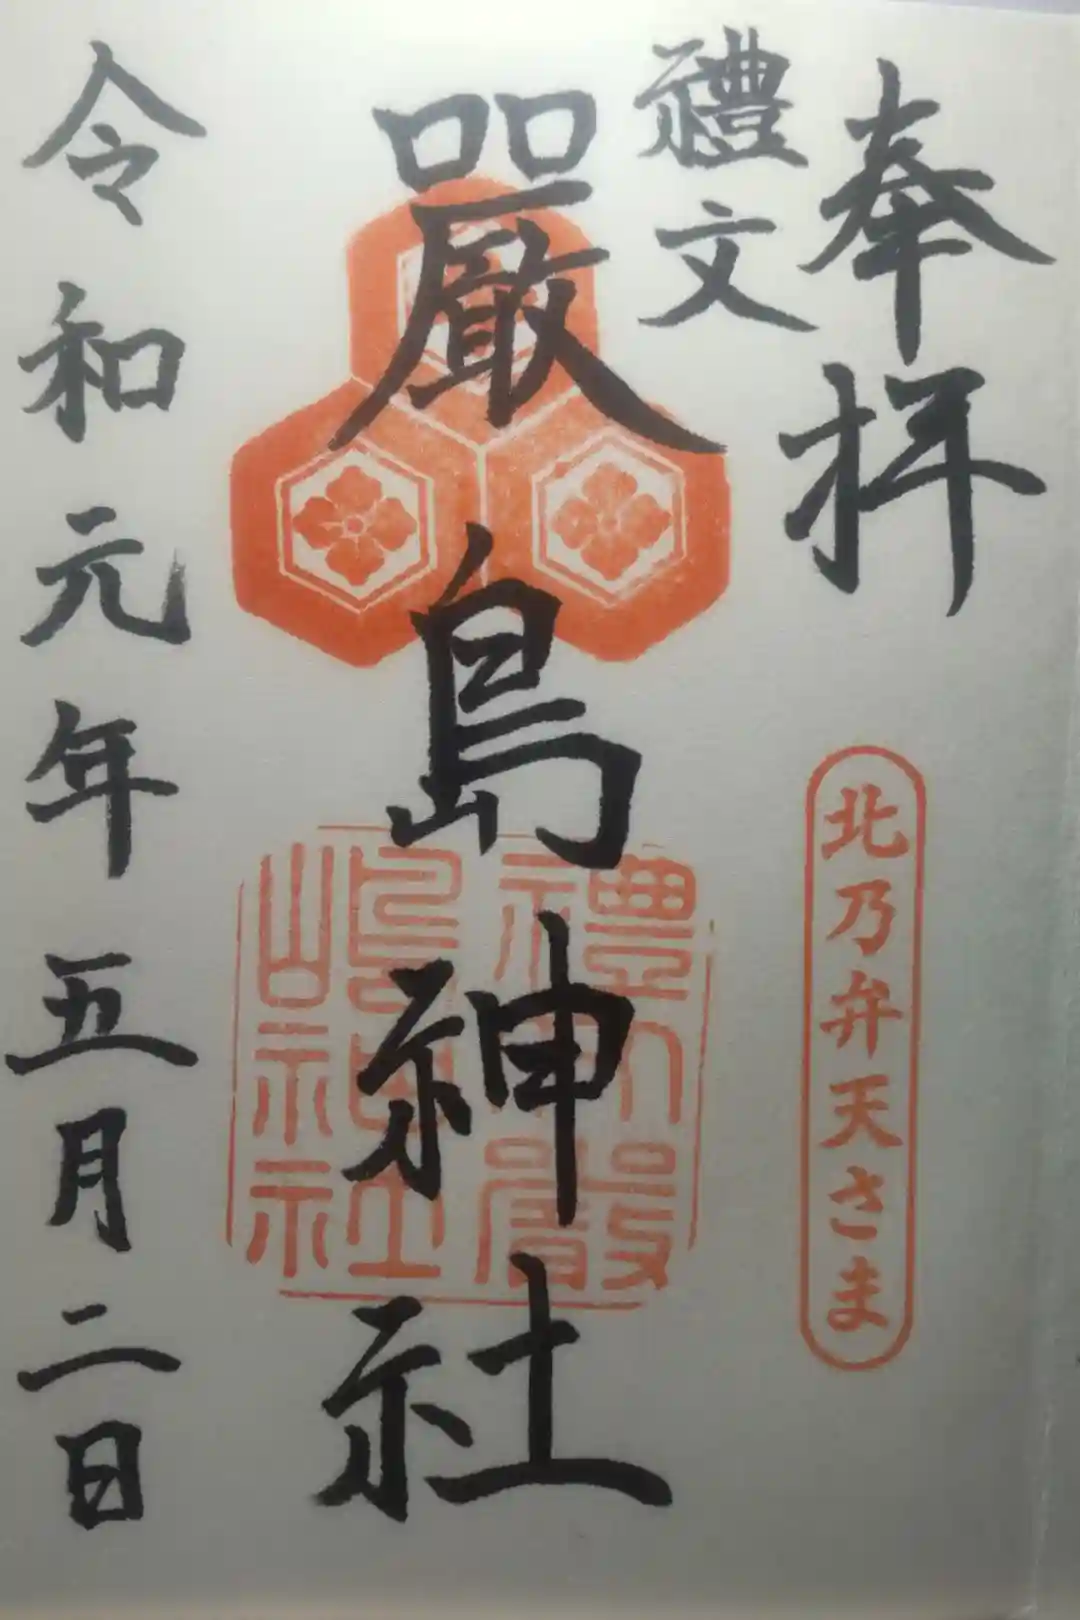 奉拝
北乃弁天さま
禮文
嚴島神社
禮文嚴
嶋神社
令和元年五月二日